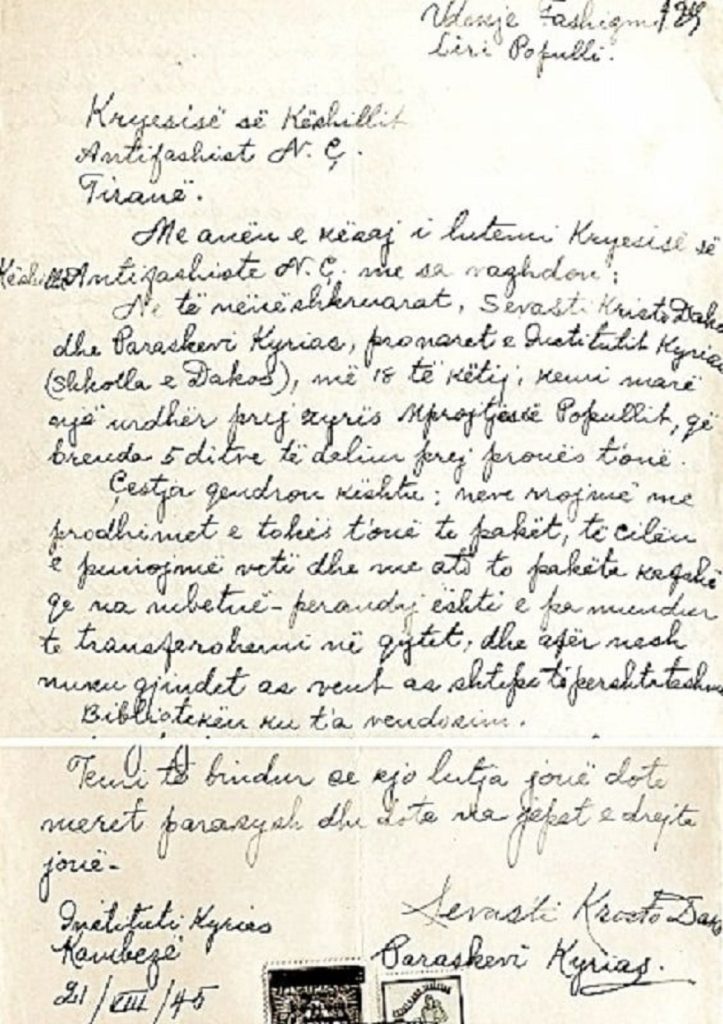 Vdekje Fashizmit
Liri Popullit.
Kryesisë së Këshillit
Antifashist N. Ç.
Tiranë.
Me anën e kësaj i lutemi Kryesisë së
Këshillit Antifashiste N. Ç. me sa vaghdon:
Ne të nënëshkruarat, Sevasti Kristo Dako
dhe Paraskevi Kyrias, pronaret e Institutit Kyrias
(Shkolla e Dakos), më 18 të këtij, kemi marë
një urdhër prej zyrës Mprojtjesië Popullit, që
brenda 5 ditve të dalim prej pronës t'onë.
Çestja qendron kështu: neve rrojmë me
prodhimet e tokës t'onë te pakët, të cilën
e punojmë vetë dhe me ato to pakëta
qe na mbetnë - perandaj është e pa mundur
te transferohemi në qytet, dhe afër nesh
nuku gjindet as vent as shtëpi të përshtatëshme
Bibliotekën ku t'a vendosim.
Jemi të bindur se kjo lutja jonë dote
meret parasysh dhe dote na jepet e drejta
jonë-
Instituti Kyrias
Kambezë
21/VIII/45
Sevasti Kristo Dako
Paraskevi Kyrias.